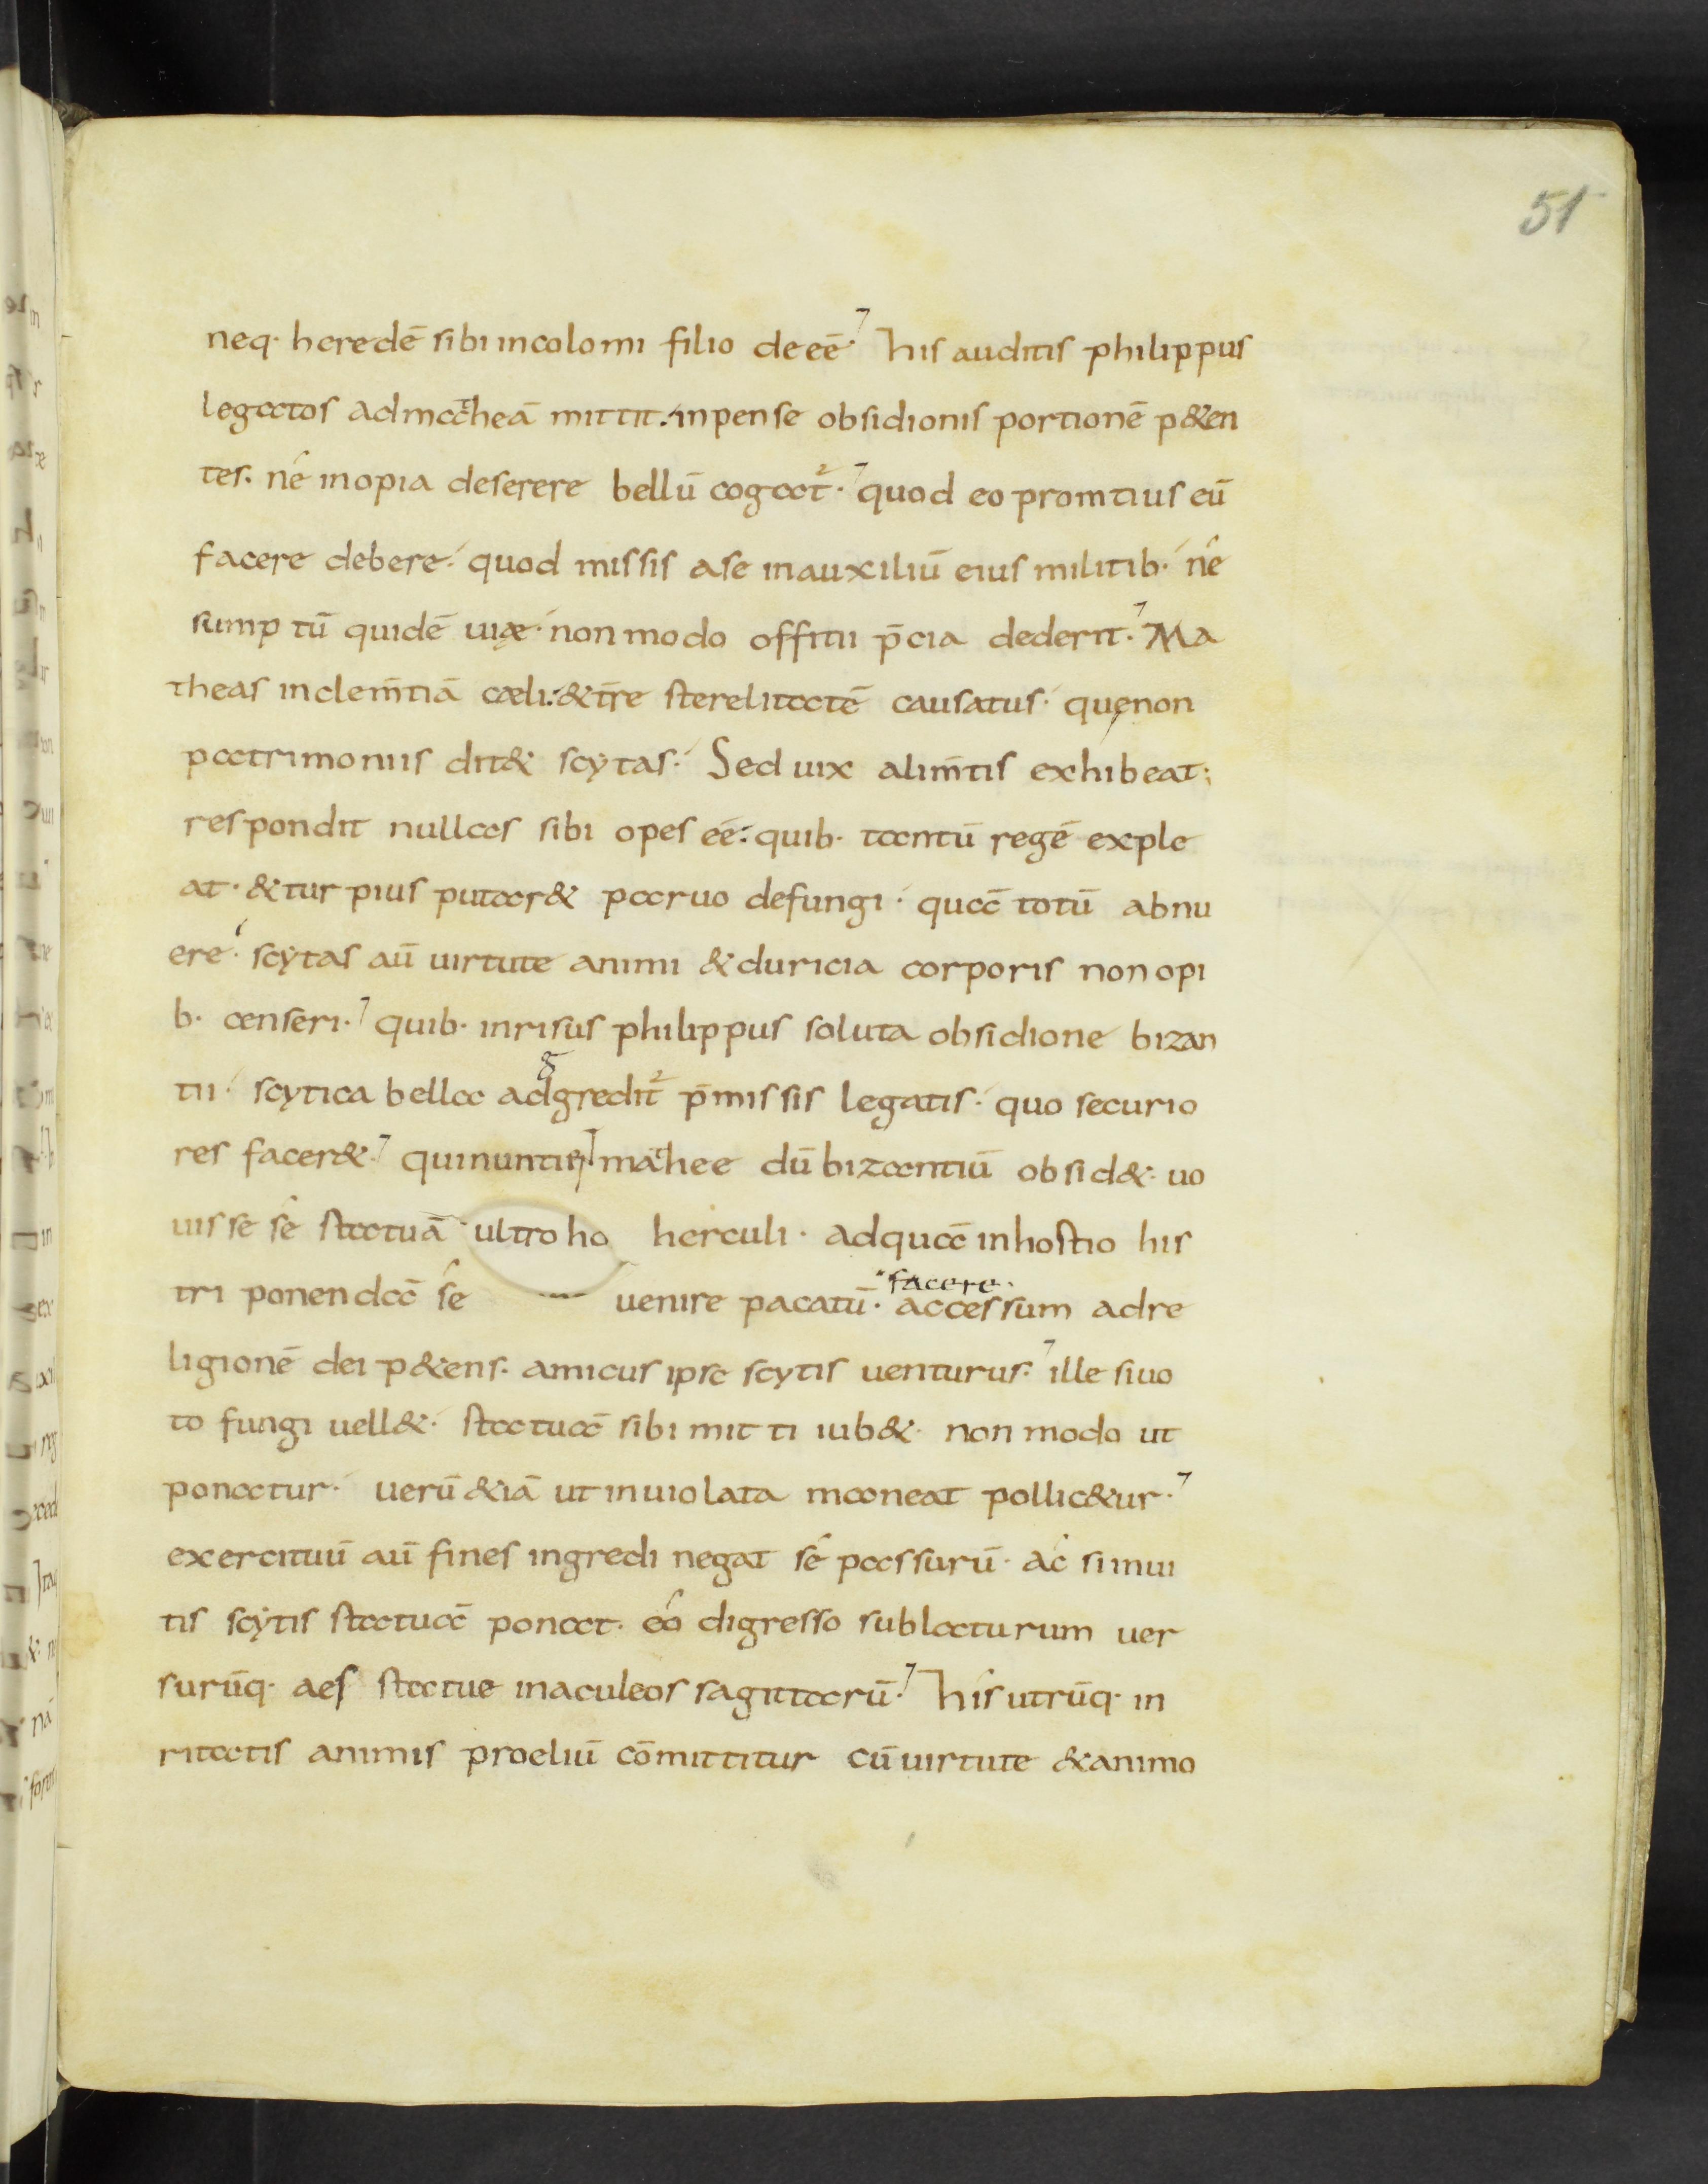 51
neq· heredē sibi incolomi filio deeē· his auditis philippus
legatos ad matheā mittit· inpense obsidionis portionē p&en
tes· ne inopia deserere bellū cogat̄· quod eo promtius eū
facere debere· quod missis a se in auxiliū eius militib· ne
sumptū quidē uiæ· non modo offitii p̄cia dederit· Ma
theas inclem̄tiā cæli· & t̄re sterelitatē causatus· que non
patrimoniis dit& scytas· Sed uix alim̄tis exhibeat·
respondit nullas sibi opes eē· quib· tantū regē exple
at· & turpius putar& paruo defungi· quā totū abnu
ere· scytas aū uirtute animi & duricia corporis non opi
b· censeri· quib· inrisus philippus soluta obsidione bizan
tii· scytica bella adgredit̄ p̄missis legatis· quo securio
res facer&· qui nuntient mathee dū bizantiū obsid&· uo
uisse se statuā ultro ho herculi· ad quā in hostio his
tri ponendā se uenire pacatū· facere· accessum ad re
ligionē dei p&ens· amicus ipse scytis uenturus· ille si uo
to fungi uell&· statuā sibi mitti iub&· non modo ut
ponatur· uerū &iā ut inuiolata maneat pollic&ur·
exercituū aū fines ingredi negat se passurū· ac si inui
tis scytis statuā ponat· eo digresso sublaturum uer
surūq· aes statue in aculeos sagittarū· his utrūq· in
ritatis animis proeliū cōmittitur cū uirtute & animo